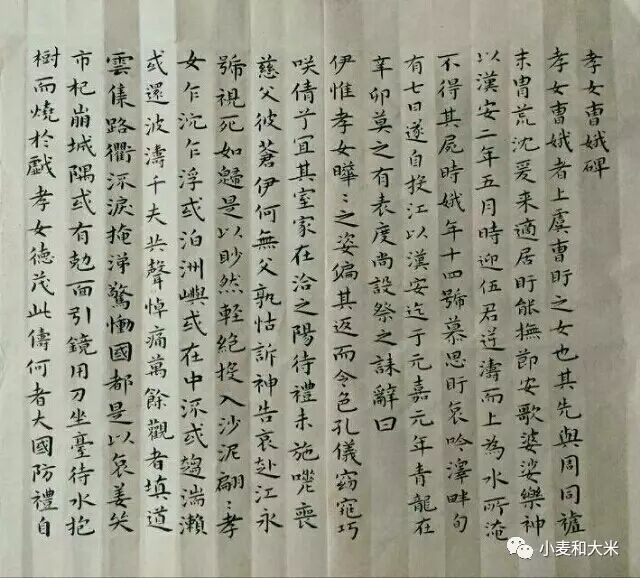 孝女曹娥碑
孝女曹娥者上虞曹盱之女也其先與周同祧
末胄荒沈爰来適居盱能撫節安歌婆娑樂神
以漢安二年五月時迎伍君逆濤而上為水所淹
不得其屍時娥年十四號慕思盱哀吟澤畔旬
有七日遂自投江以漢安迄于元嘉元年青龍在
辛卯莫之有表度尚設祭之誄辭曰
伊惟孝女曄〻之姿偏其返而令色孔儀窈窕巧
咲倩兮宜其室家在洽之陽待禮未施嗟喪
慈父彼蒼伊何無父孰怙訴神告哀赴江永
號視死如歸是以眇然輕絕投入沙泥翩〻孝
女乍沉乍浮或泊洲嶼或在中流或趨湍瀨
或還波濤千夫共聲悼痛萬餘觀者填道
雲集路衢流淚掩涕驚慟國都是以哀姜哭
市杞崩城隅或有尅面引鏡用刀坐臺待水抱
樹而燒於戲孝女德茂此儔何者大國防禮自
小麦和大米